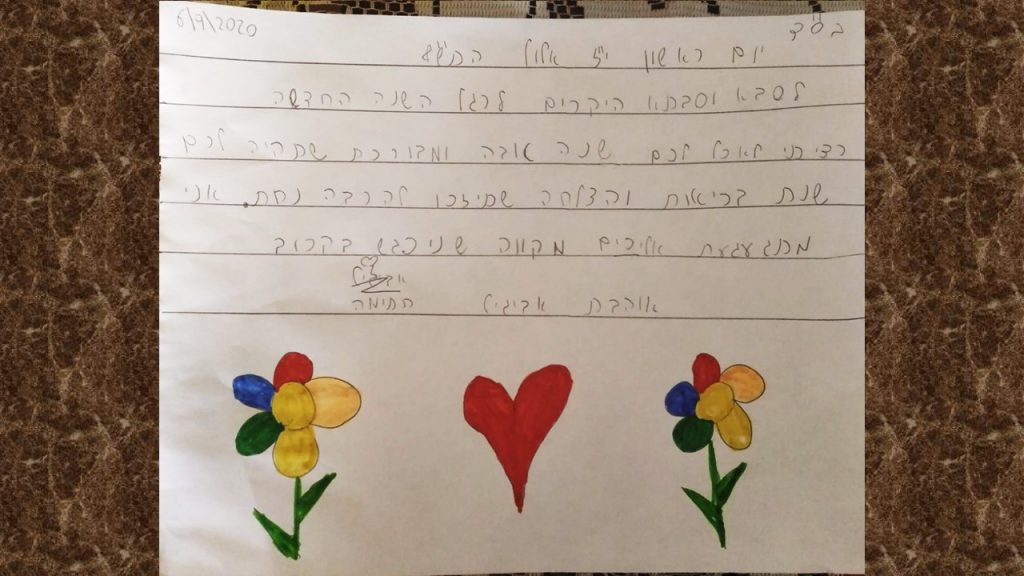 בס"ד 6/9/2020
יום ראשון י"ז אלול התש"פ
לסבא וסבתא היקרים לרגל השנה החדשה
רציתי לאחל לכם שנה טובה ומבורכת שתהיה לכם
שנת בריאות והצלחה שתיזכו להרבה נחת. אני
מתגעגעת אליכים מקווה שניפגש בקרוב
אוהבת אביגיל חתימה